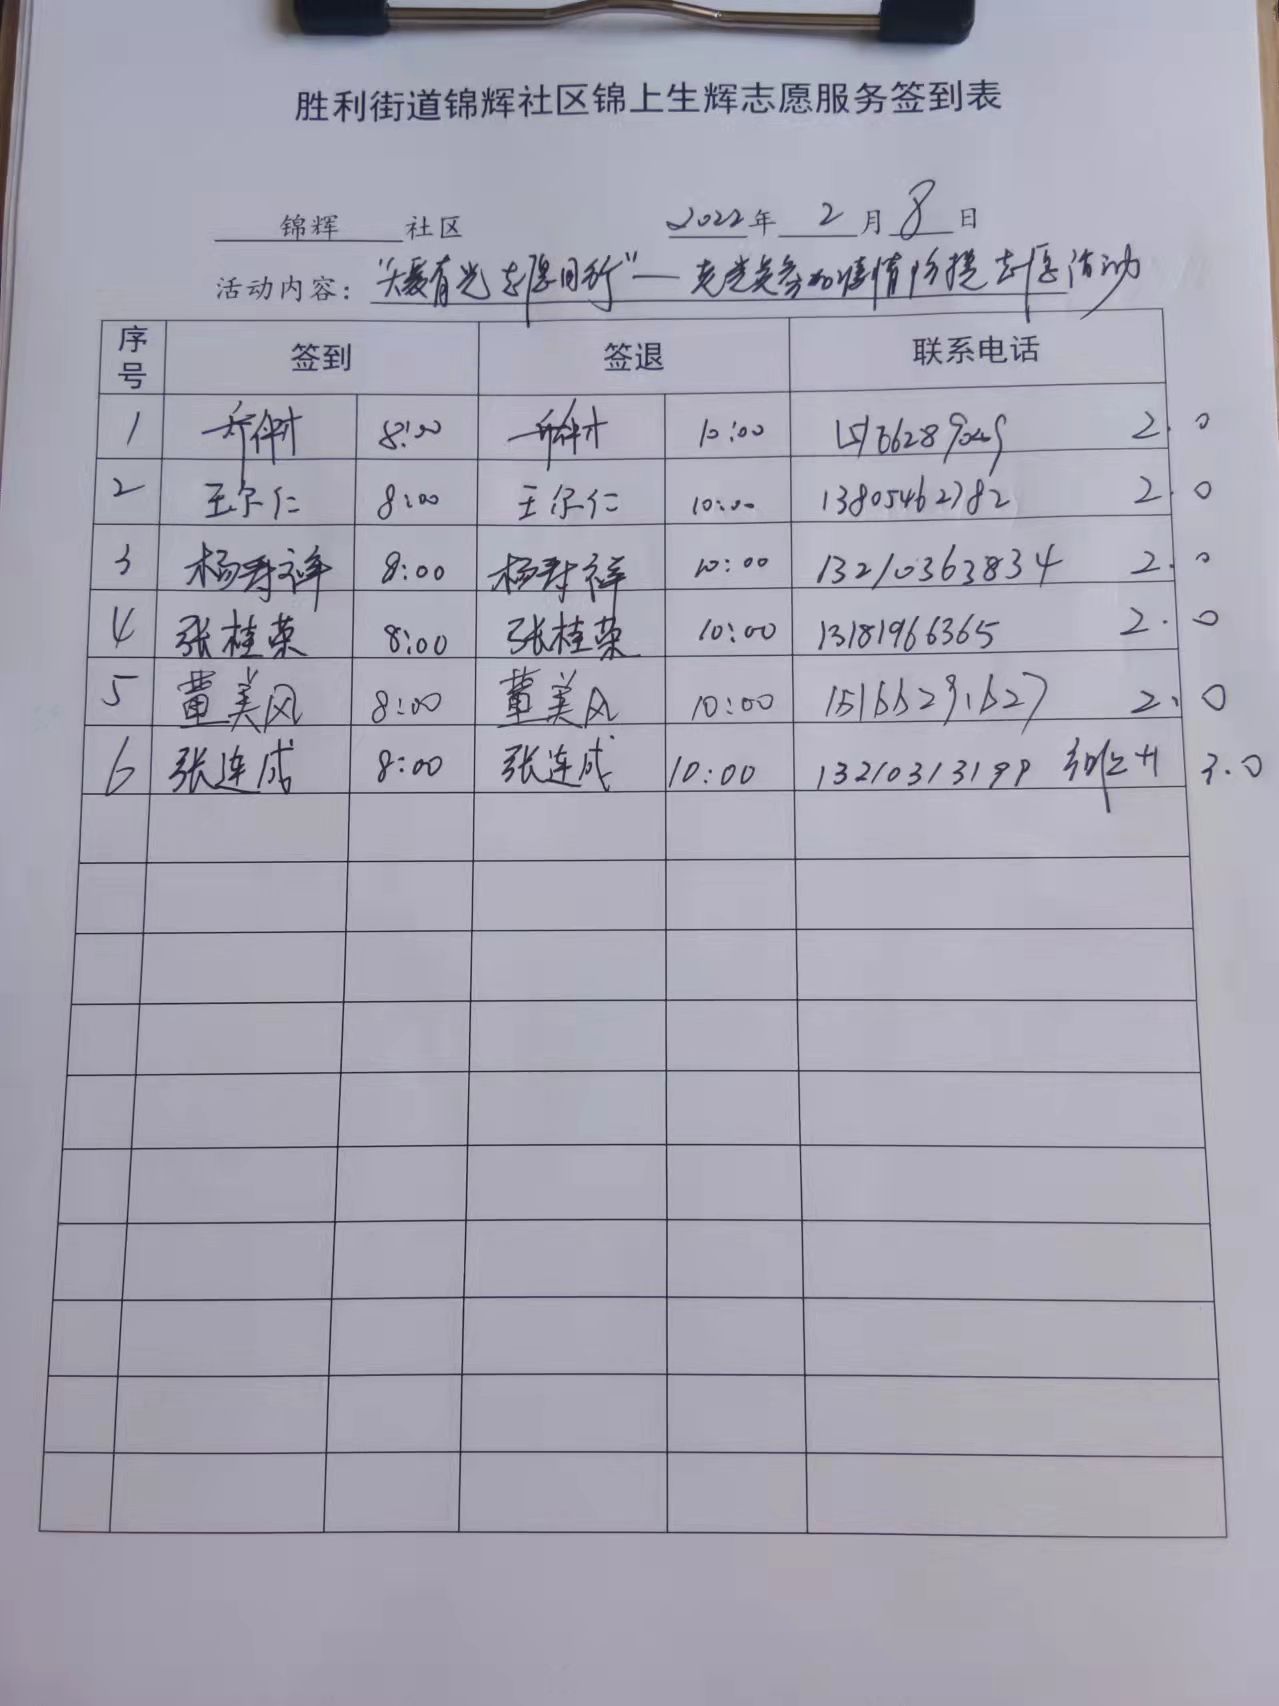 胜利街道锦辉社区锦上生辉志愿服务签到表
锦辉 社区 2022年 2 月 8 日
活动内容: "大爱有光 志愿同行"— 老党员参加疫情防控志愿活动
序号 签到 签退 联系电话
1 8:00 10:00 2.0
2 王尔仁 8:00 王尔仁 10:00 13805462782 2.0
3 杨寿祥 8:00 杨寿祥 10:00 13210363834 2.0
4 张桂荣 8:00 张桂荣 10:00 13181966365 2.0
5 董美风 8:00 董美风 10:00 2.0
6 张连成 8:00 张连成 10:00 13210313199 3.0